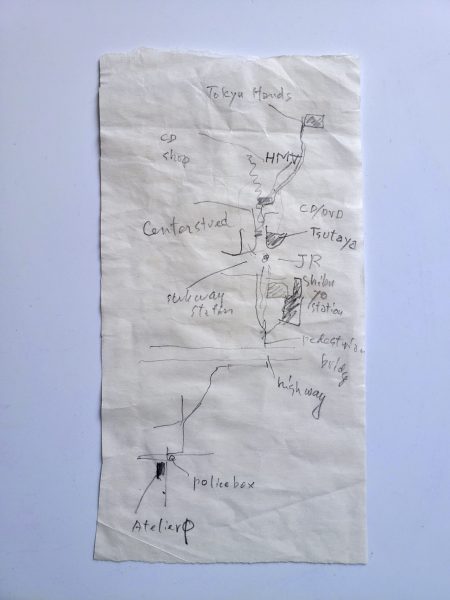 Tokyu Hands
CD
shop
HMV
CD/DVD
Tsutaya
Centerstreed
JR
Shibu
ya
station
subway
station
pedestrian
bridge
highway
policebox
Atelier φ